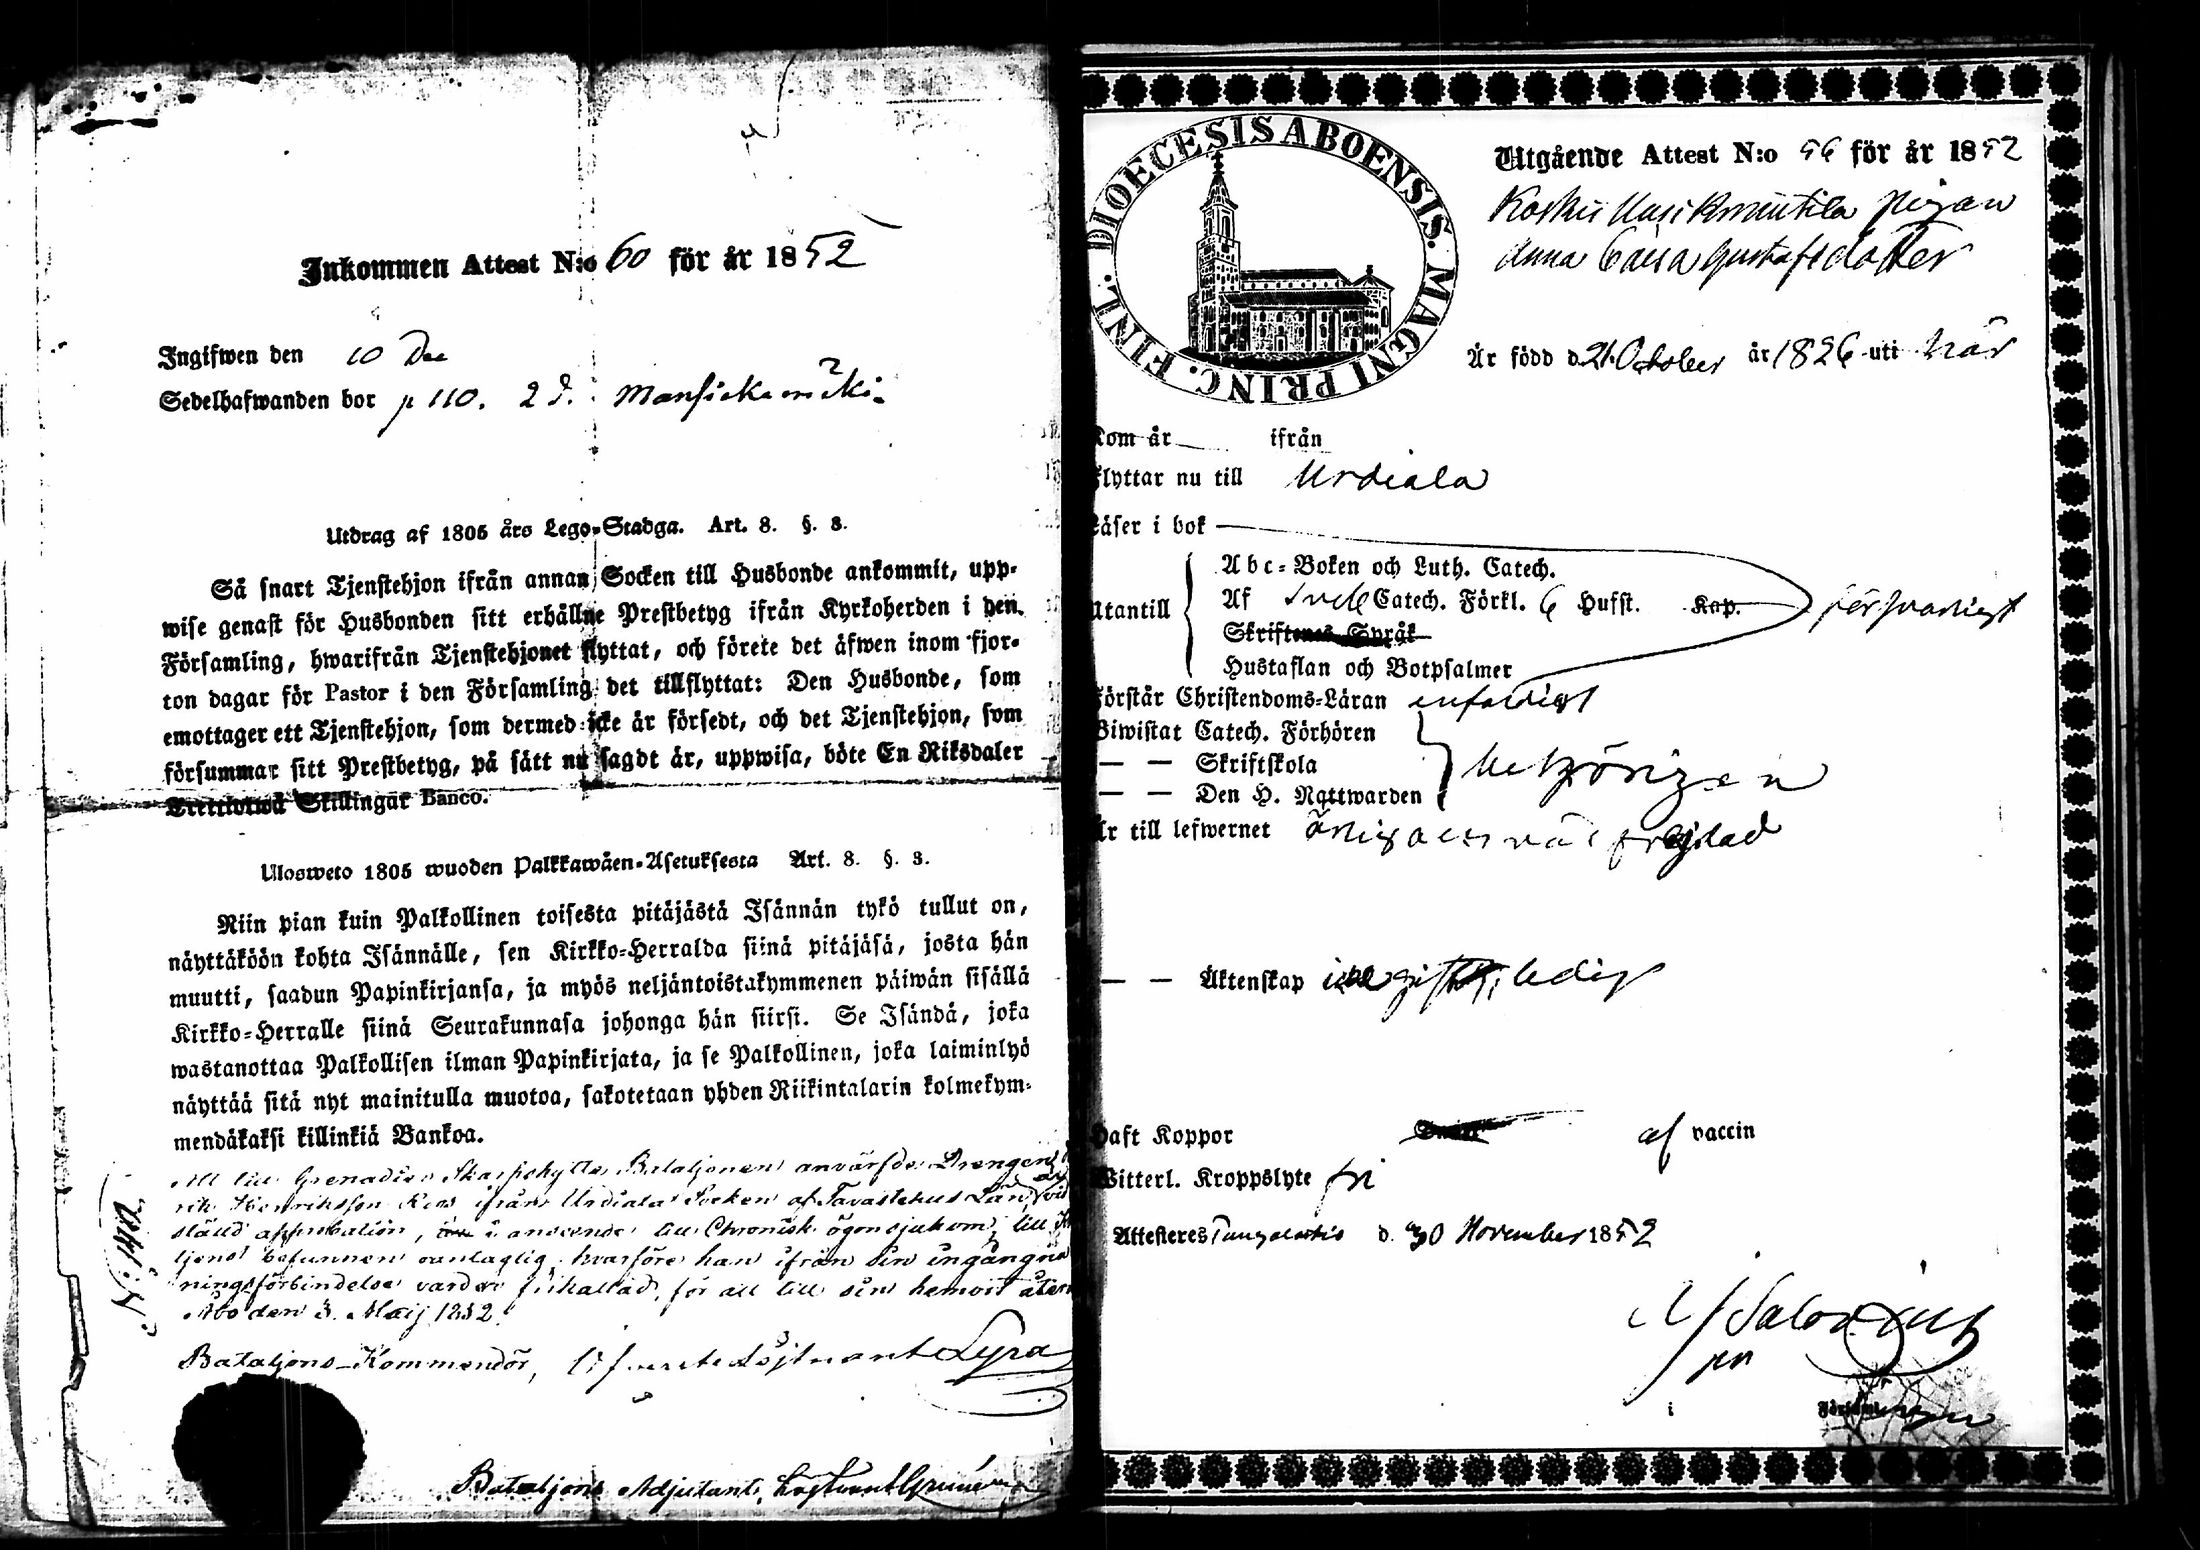 Inkommen Attest N:o 60 för år 1852
Ingifwen den 10 Dec
Sedelhafwanden bor p 110. 2 d. Mansickamäki
Utdrag af 1805 års Lego-Stadga. Art. 8. §. 3.
Så snart Tjenstehjon ifrån annan Socken till Husbonde ankommit, upp-
wise genast för Husbonden sitt erhållne Prestbetyg ifrån Kyrkoherden i den
Församling, hwarifrån Tjenstehjonet flyttat, och förete det äfwen inom fjor-
ton dagar för Pastor i den Församling det tillflyttat: Den Husbonde, som
emottager ett Tjenstehjon, som dermed icke är försedt, och det Tjenstehjon, som
försummar sitt Prestbetyg, på sätt nu sagdt är, uppwisa, böte En Riksdaler
Trettiotwå Skillingar Banco.
Ulosweto 1805 wuoden Palkkawäen-Asetuksesta Art. 8. §. 3.
Niin pian kuin Palkollinen toisesta pitäjästä Isännän tykö tullut on,
näyttäköön kohta Isännälle, sen Kirkko-Herralda siinä pitäjäsä, josta hän
muutti, saadun Papinkirjansa, ja myös neljäntoistakymmenen päiwän sisällä
Kirkko-Herralle siinä Seurakunnasa johonga hän siirsi. Se Isändä, joka
wastanottaa Palkollisen ilman Papinkirjata, ja se Palkollinen, joka laiminlyö
näyttää sitä nyt mainitulla muotoa, sakotetaan yhden Riikintalarin kolmekym-
mendäkaksi killinkiä Bankoa.
Att till Grenadier Skarpskytte Bataljonen anvärfde Drengen
rik Henriksson ifrån Urdiala Socken af Tavastehus Län,
ställd approbation, i anseende till Chronisk ögonsjukdom, till
tjenst befunnen oantaglig, hvarföre han ifrån sin ingångna
ningsförbindelse varder frikallad, för att till sin hemort åter
Åbo den 3. Maij 1852.
Bataljons-Kommendör, Lyra
Bataljons Adjutant,
Utgående Attest N:o 56 för år 1852
pigan
Anna Caisa Gustafsdotter
Är född d. 21 October år 1826 uti här
Kom år ifrån
Flyttar nu till Urdiala
Läser i bok
Abc-Boken och Luth. Catech.
Utantill Af Sveb Catech. Förkl. 6 Hufst. Kap. försvarligt
Skriftenes Språk
Hustaflan och Botpsalmer
Förstår Christendoms-Läran enfaldigt
Biwistat Catech. Förhören
— — Skriftskola behörigen
— — Den H. Nattwarden
Är till lefwernet ärlig och väl frejdad
— — Äktenskap ledig
Haft Koppor af vaccin
Witterl. Kroppslyte fri
Attesteras d. 30 November 1852
i